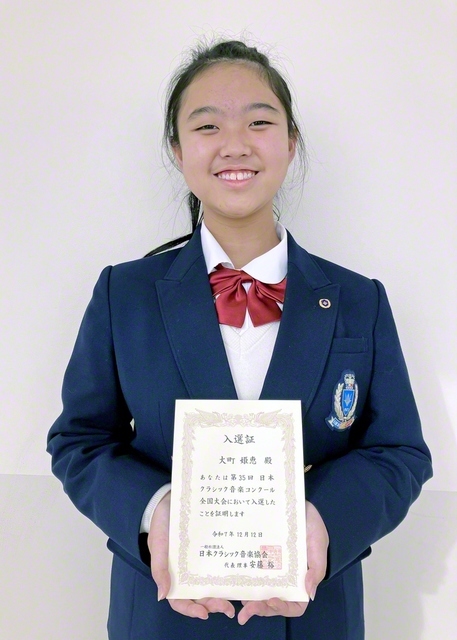 入選証
大町 姫恵 殿
あなたは第35回 日本
クラシック音楽コンクール
全国大会において入選した
ことを証明します
令和7年 12月12日
一般社団法人
日本クラシック音楽協会
代表理事 安藤 裕